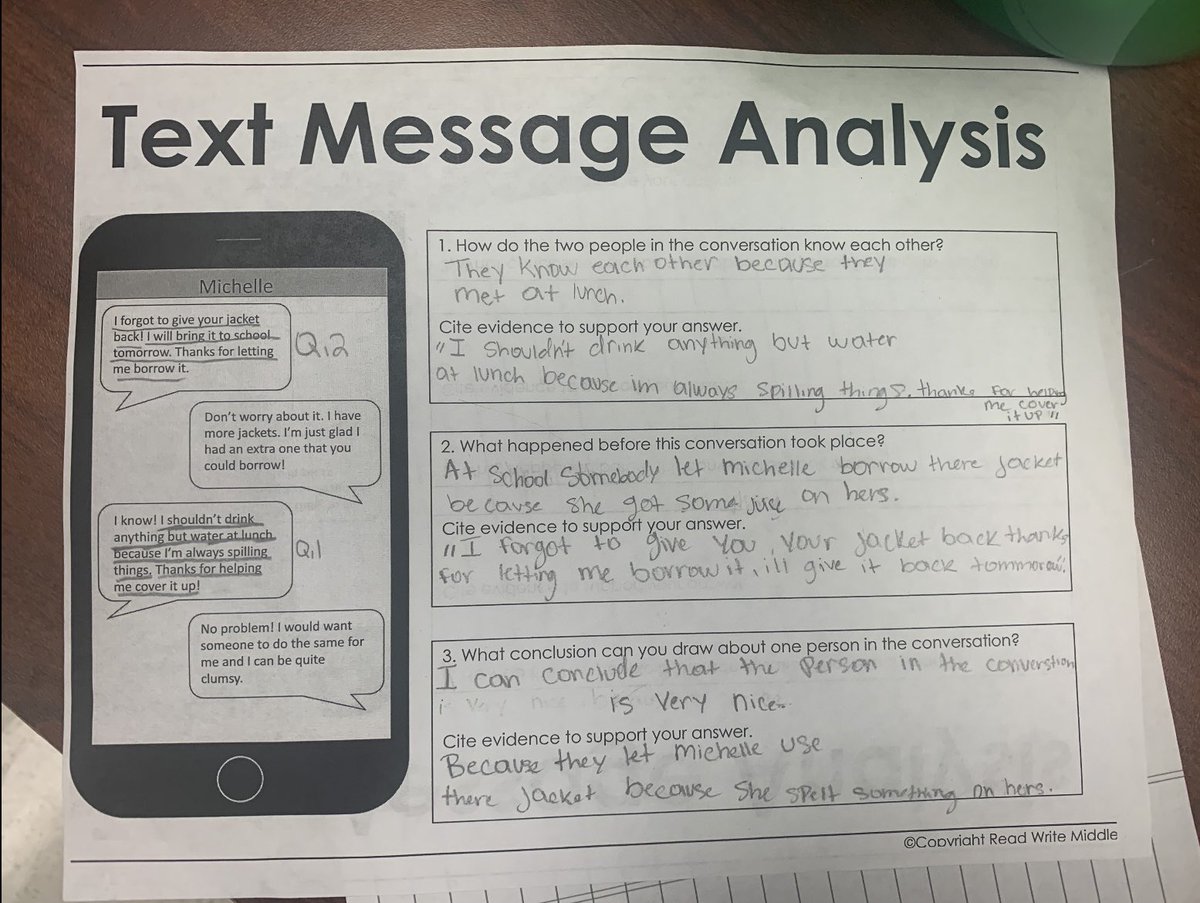 Text Message Analysis
Michelle
I forgot to give your jacket
back! I will bring it to school
tomorrow. Thanks for letting
me borrow it.
Q,2
Don't worry about it. I have
more jackets. I'm just glad I
had an extra one that you
could borrow!
I know! I shouldn't drink
anything but water at lunch
because I'm always spilling
things. Thanks for helping
me cover it up!
Q,1
No problem! I would want
someone to do the same for
me and I can be quite
clumsy.
1. How do the two people in the conversation know each other?
They know each other because they
met at lunch.
Cite evidence to support your answer.
"I shouldn't drink anything but water
at lunch because im always spilling things. thanks for helping
me cover
it up"
2. What happened before this conversation took place?
At School Somebody let michelle borrow there jacket
because she got some on hers.
Cite evidence to support your answer.
"I forgot to give you, your jacket back thanks
for letting me borrow it, ill give it back tommorow".
3. What conclusion can you draw about one person in the conversation?
I can conclude that the person in the converstion
is very nice.
Cite evidence to support your answer.
Because they let michelle use
there jacket because she spelt something on hers.
©Copyright Read Write Middle